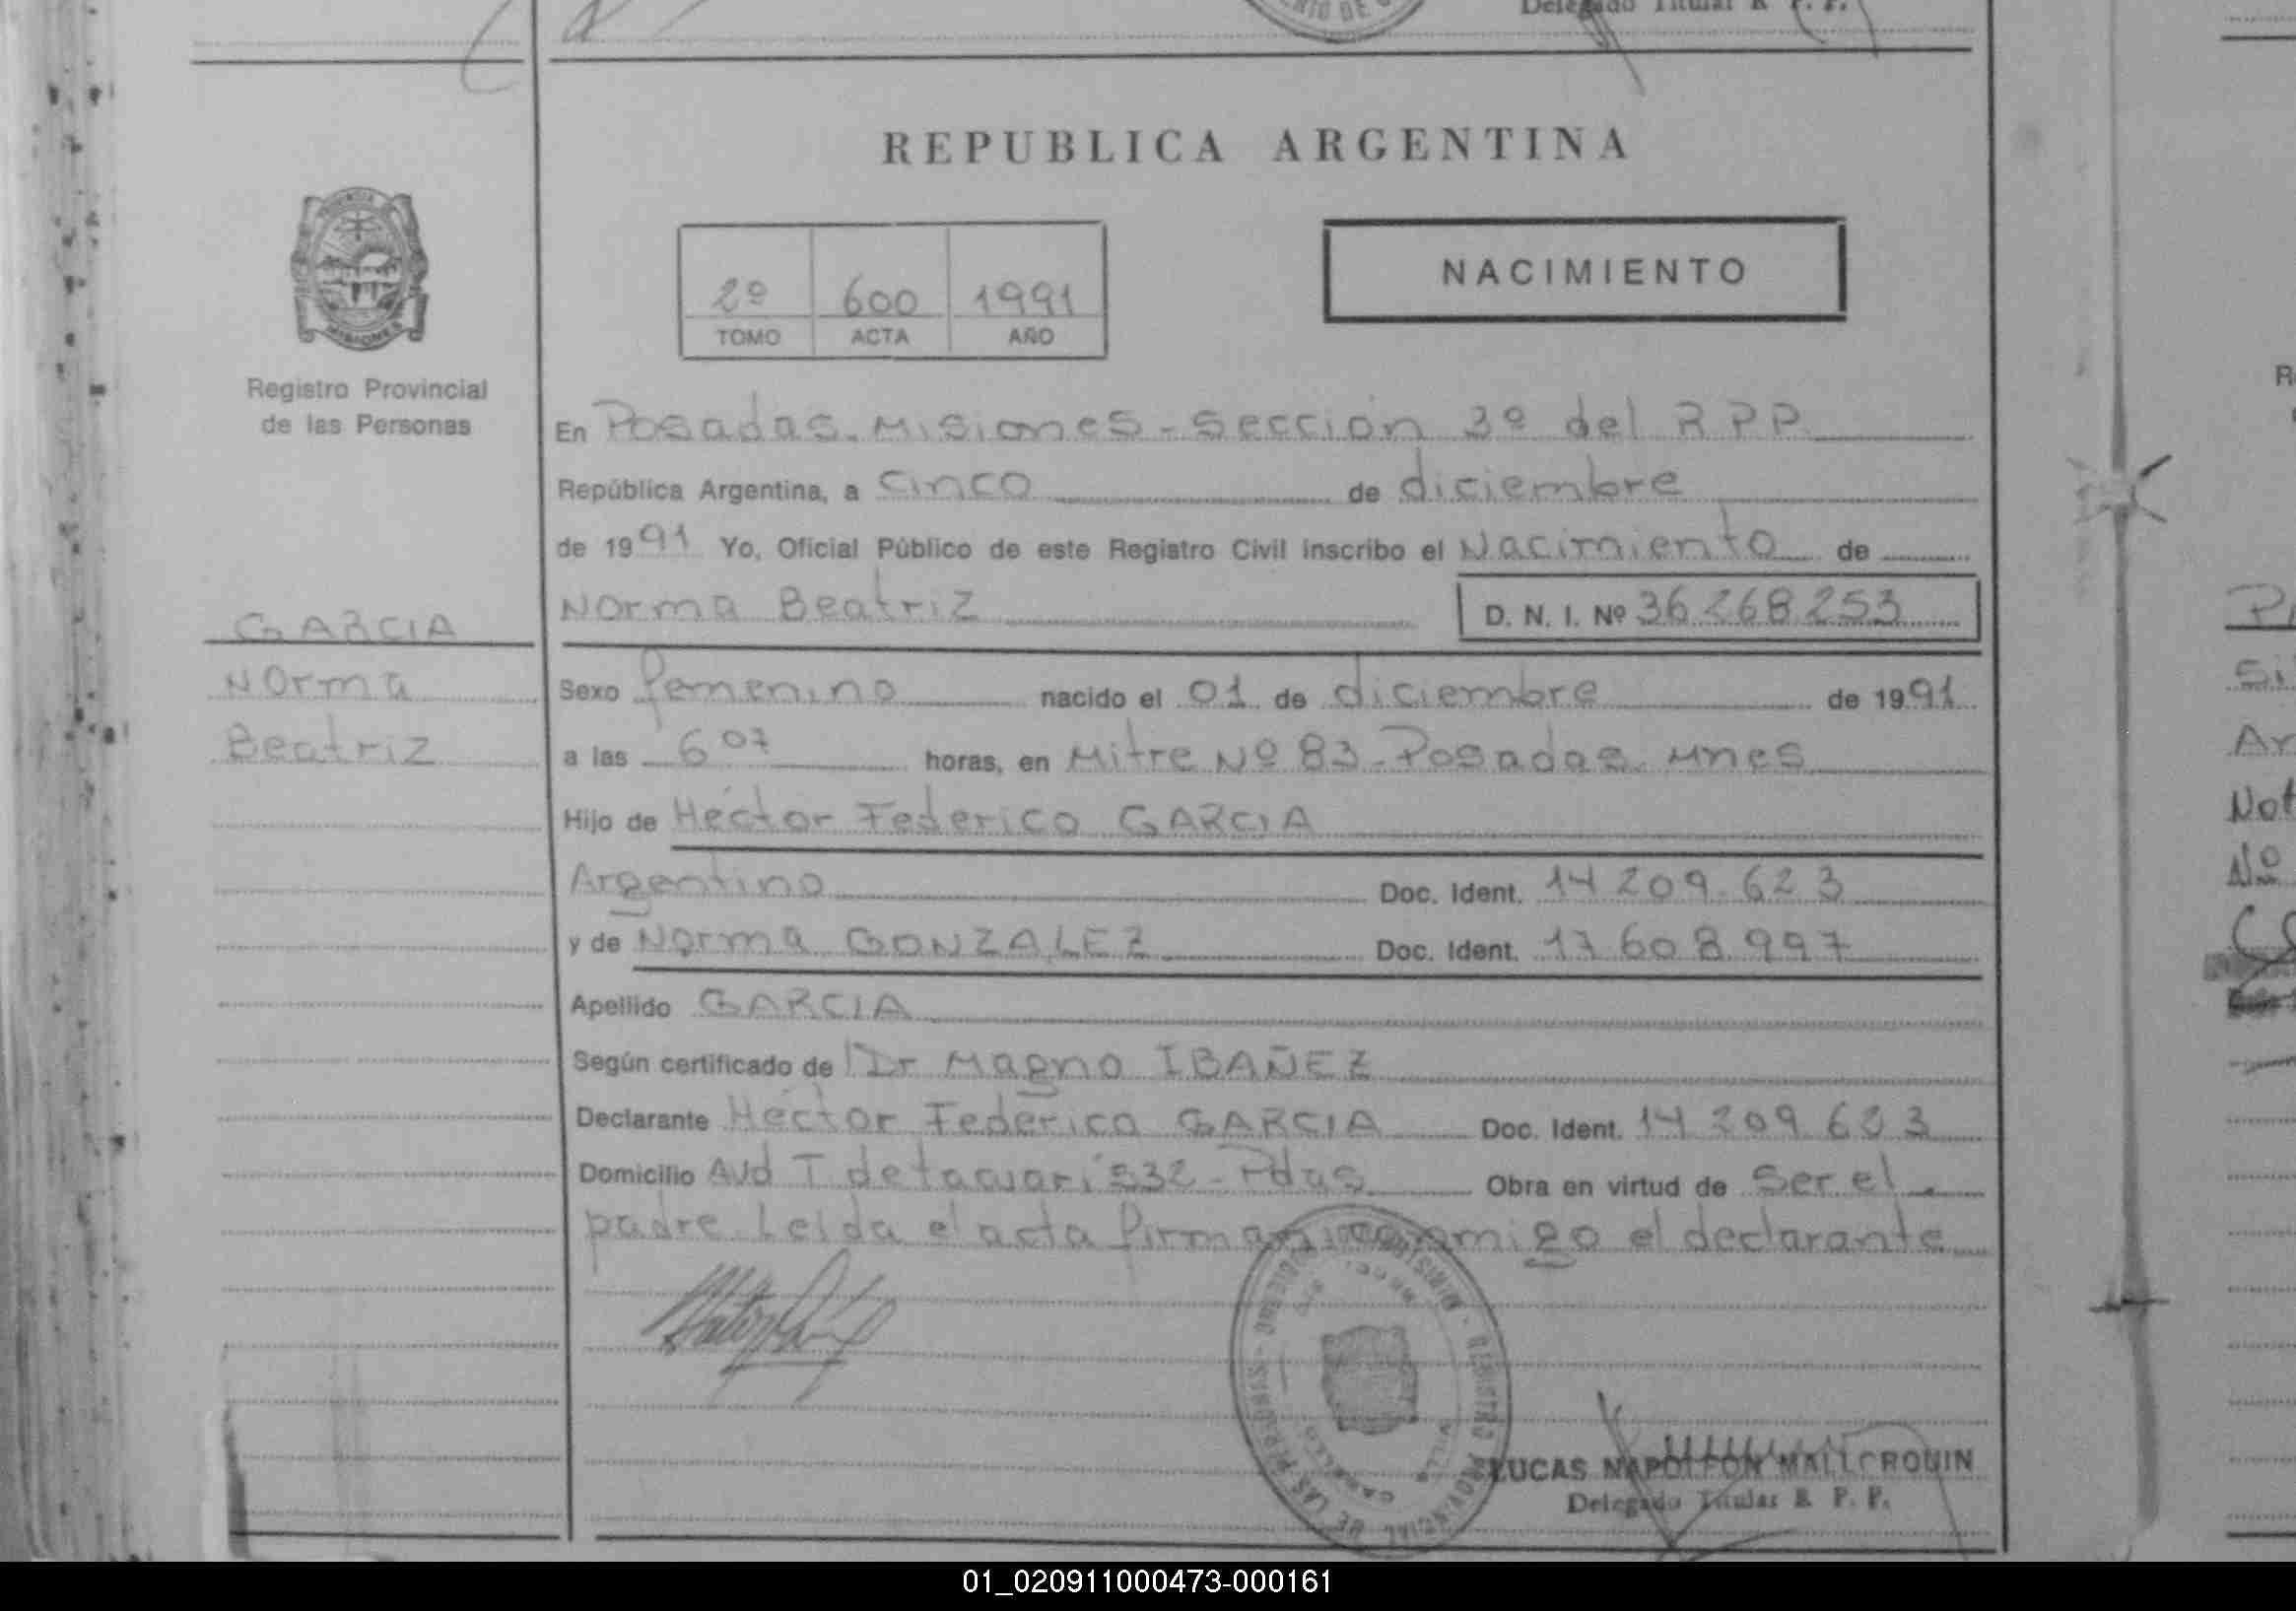 Delegado Titular R. P. P.
REPUBLICA ARGENTINA
MISIONES
Registro Provincial
de las Personas
2º 600 1991
TOMO ACTA AÑO
NACIMIENTO
En Posadas. Misiones - Sección 3º del R P P.
República Argentina, a cinco de diciembre
de 1991 Yo, Oficial Público de este Registro Civil inscribo el Nacimiento de
Norma Beatriz D. N. I. Nº 36.268.253
GARCIA
Norma
Beatriz
Sexo femenino nacido el 01 de diciembre de 1991
a las 6 07 horas, en Mitre Nº 83 - Posadas. Mnes
Hijo de Héctor Federico GARCIA
Argentino Doc. Ident. 14 209.623
y de Norma GONZALEZ Doc. Ident. 17 608 997
Apellido GARCIA
Según certificado de Dr Magno IBAÑEZ
Declarante Héctor Federico GARCIA Doc. Ident. 14 209 623
Domicilio Avd T. de tacuari 532 - Pdas Obra en virtud de ser el
padre. Leida el acta firman conmigo el declarante
REGISTRO PROVINCIAL DE LAS PERSONAS
LUCAS NAPOLEON MALLORQUIN
Delegado Titular R. P. P.
Not
Nº
01_020911000473-000161